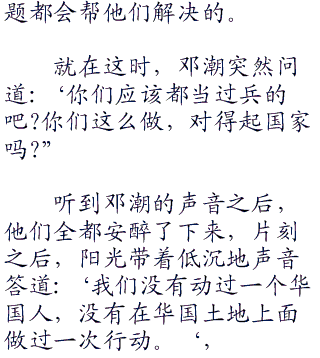 题都会帮他们解决的。
就在这时，邓潮突然问
道：‘你们应该都当过兵的
吧?你们这么做，对得起国家
吗?”
听到邓潮的声音之后，
他们全都安醉了下来，片刻
之后，阳光带着低沉地声音
答道：‘我们没有动过一个华
国人，没有在华国土地上面
做过一次行动。‘，